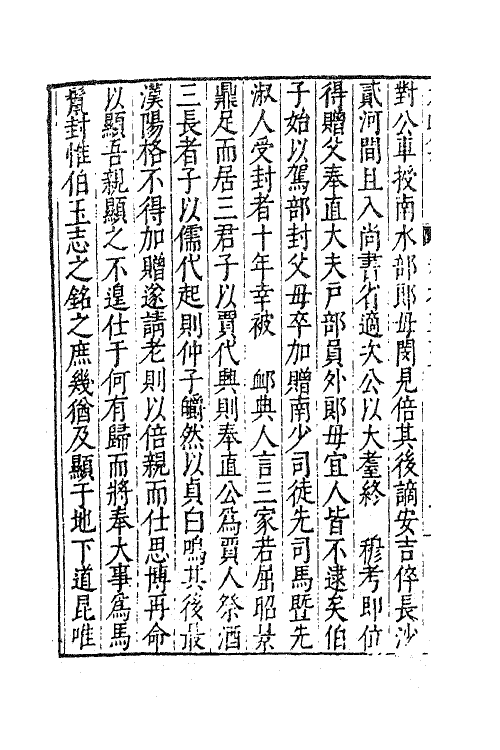 對公車授南水部郎毋閔見倍其後謫安吉倅長沙
貳河間且入尚書省適次公以大耋終　穆考即位
得贈父奉直大夫戶部員外郎毋宜人皆不逮矣伯
子始以駕部封父毋卒加贈南少司徒先司馬暨先
淑人受封者十年幸被　卹典人言三家若屈昭景
鼎足而居三君子以賈代興則奉直公為賈人祭酒
三長者子以儒代起則仲子皭然以貞白鳴其後最
漢陽格不得加贈遂請老則以倍親而仕思博再命
以顯吾親顯之不遑仕于何有歸而將奉大事為馬
鬣封惟伯玉志之銘之庶幾猶及顯于地下道昆唯